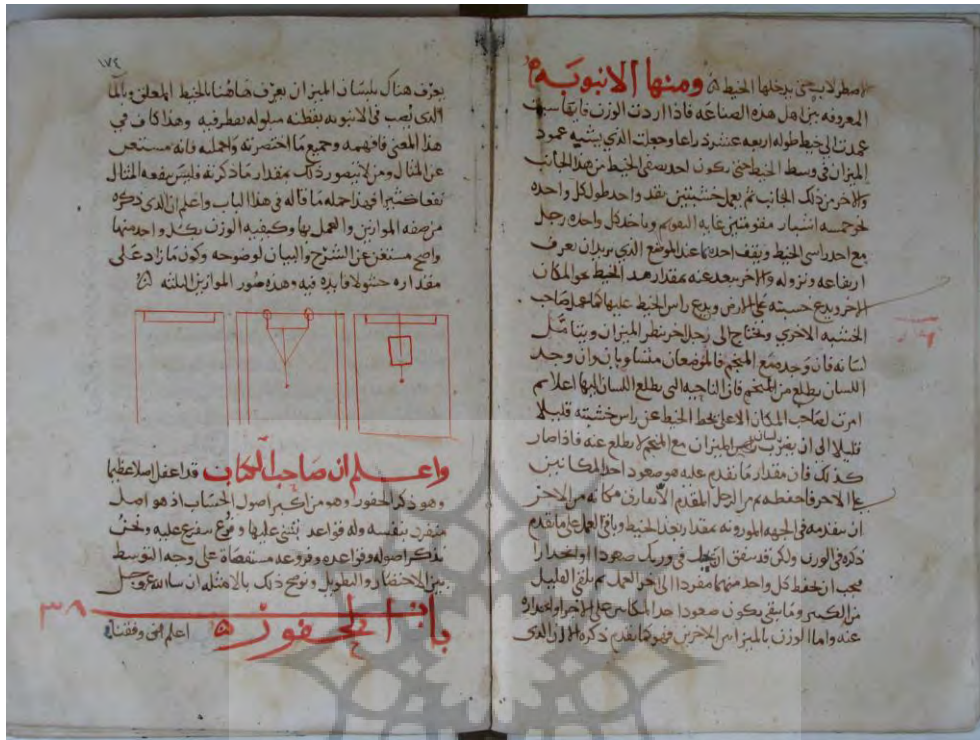 اصطرلاب حتى يدخلها الخيط ومنها الانبوبه
المعروفه بين اهل هذه الصناعه فاذا اردت الوزن بها
عمدت الى خيط طوله اربعه عشر ذراعا وجعلت الذي يشبه عمود
الميزان في وسط الخيط حتى يكون احد نصفي الخيط من هذا الجانب
والاخر من ذلك الجانب ثم يعمل خشبتين بقد واحد طول كل واحده
نحو خمسه اشبار مقومتين غايه التقويم وياخذ كل واحده رجل
مع احد راسي الخيط ويقف احدهما عند الموضع الذي يريد ان يعرف
ارتفاعه ونزوله والاخر يبعد عنه مقدار مد الخيط نحو المكان
الاخر ويدع خشبته على الارض ويدع راس الخيط عليها كما عمل صاحب
الخشبه الاخرى ويحتاج الى رجل اخر ينظر الميزان ويتامل
لسانه فان وجده مع المنجم فالموضعان متساويان وان وجد
اللسان يطلع من المنجم فان الناحيه التي يطلع اللسان اليها اعلا ثم
امرت لصاحب المكان الاعلى يحط الخيط عن راس خشبته قليلا
قليلا الى ان يضرب لسان الميزان مع المنجم لا يطلع عنه فاذا صار
كذلك فان مقدار ما تقدم عليه هو صعود احد المكانين
على الاخر فاحفظه ثم مر الرجل المقدم لا يفارق مكانه ومر الاخر
ان يتقدمه في الجهه الموزونه مقدار بعد الخيط وباقي العمل على ما تقدم
ذكره في الوزن ولكن قد يتفق ان في وزنك صعودا او انحدارا
فيجب ان يحفظ كل واحد منهما مفردا الى اخر العمل ثم تلقي القليل
من الكثير وما بقي يكون صعود احد المكانين على الاخر او انحداره
عنه واما الوزن بالميزانين الاخرين فهو كما تقدم ذكره الا ان الذي
١٧٤
يعرف هناك بلسان الميزان يعرف هاهنا بالخيط المعلق وبالما
الذي يصب في الانبوبه بقطنه مبلوله بقطر فيه وهذا كاف في
هذا المعنى فافهمه وجميع ما اختصرته واجمله فانه مستغن
عن المثال ومن لا يتصور ذلك بمقدار ما ذكرته فليس ينفعه المثال
نفعا كثيرا فهذا جمله ما قاله في هذا الباب واعلم ان الذي ذكره
من صفه الموازين والعمل بها وكيفيه الوزن بكل واحد منها
واضح مستغن عن الشرح والبيان لوضوحه وكون ما زاد على
مقداره حشوا لا فايده فيه وهذه صور الموازين الثلثه
واعلم ان صاحب الكتاب قد اغفل اصلا عظيما
وهو ذكر الحفور وهو من اكبر اصول الحساب اذ هو اصل
منفرد بنفسه وله قواعد يبتنى عليها وفروع يتفرع عليه ونحن
نذكر اصوله وقواعده وفروعه مستقصاة على وجه التوسط
بين الاختصار والتطويل ونوضح ذلك بالامثله ان شا الله عز وجل
٣٨
باب الحفور اعلم انى وفقنا